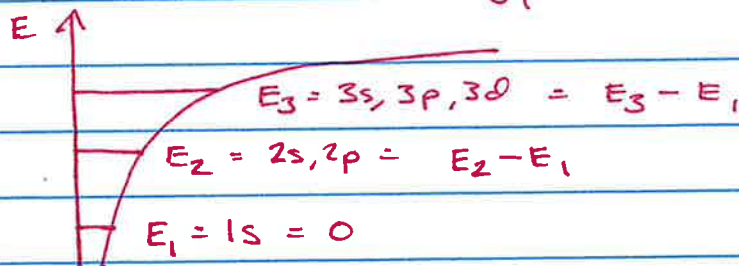 E
E₃ = 3s, 3p, 3d = E₃ - E₁
E₂ = 2s, 2p = E₂ - E₁
E₁ = 1s = 0